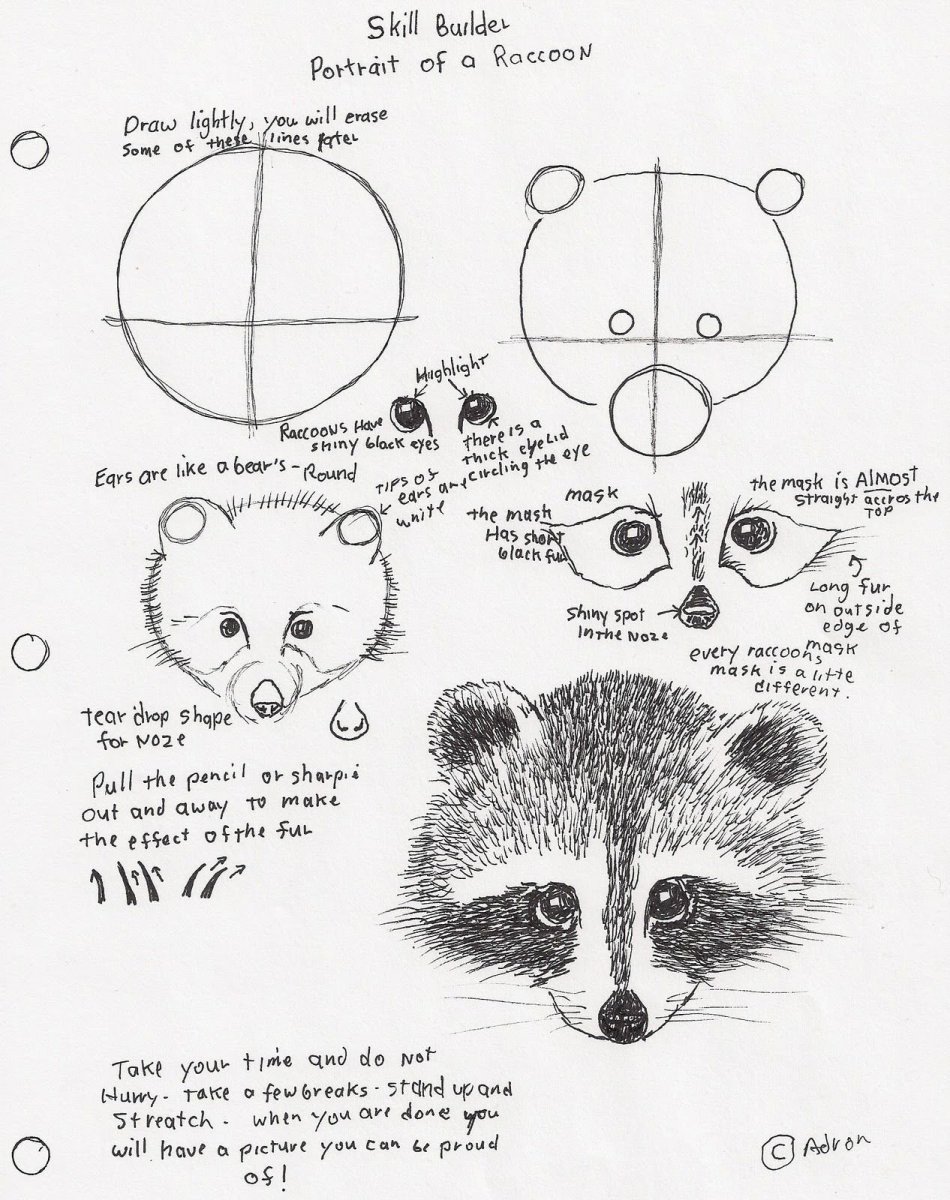 Skill Builder
Portrait of a Raccoon
Draw lightly, you will erase
some of these lines later
Highlight
Raccoons Have
shiny black eyes
there is a
thick eyelid
circling the eye
Ears are like a bear's - Round
Tips of
ears are
white
mask
the mask
Has short
black fur
the mask is ALMOST
straight accros the
TOP
Long fur
on outside
edge of
mask
Shiny spot
In the Noze
every raccoons
mask is a litte
different.
tear drop shape
for Noze
Pull the pencil or sharpie
out and away to make
the effect of the fur
Take your time and do Not
Hurry - Take a few breaks - Stand up and
Streatch - when you are done you
will have a picture you can be proud
of!
© Adron